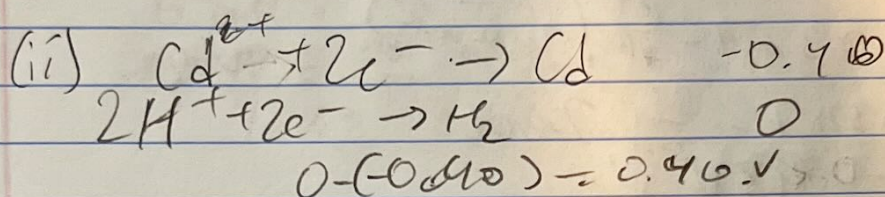 (ii) Cd²⁺ + 2e⁻ → Cd -0.40
2H⁺ + 2e⁻ → H₂ 0
0-(-0.40) = 0.40 V > 0